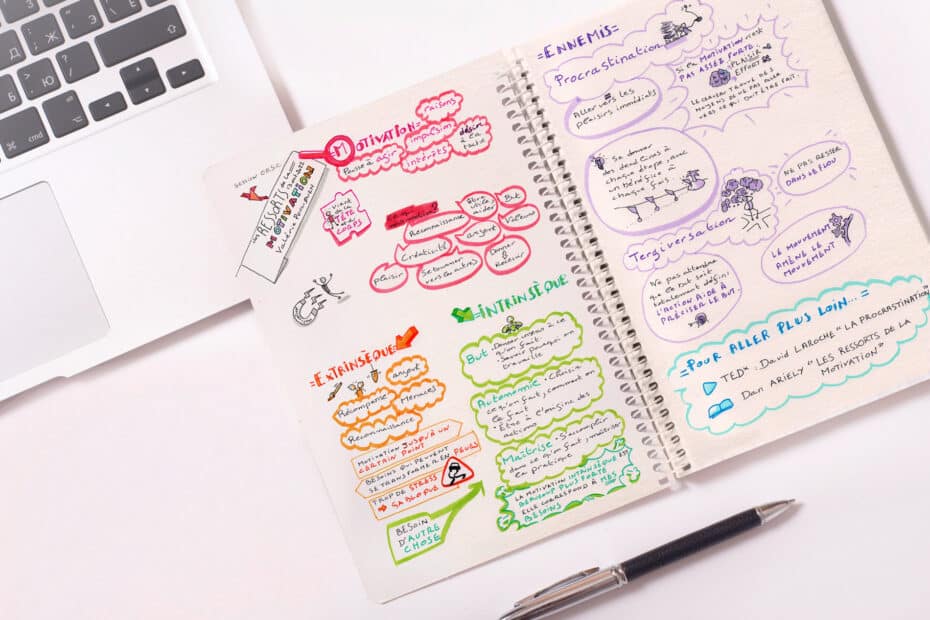 Й
Ц
Д
Ж
Э
Б
Ю
cmd
SENIOR CRSC
LES
RESSORTS de la
MOTIVATION
Valérie
MOTIVATION =
Pousse à agir
raisons
impulsion
intérêts
désir
à la
tâche
VIENT
de la
TÊTE
du
CORPS
Reconnaissance
Être
utile,
aider
But
Créativité
argent
Valeurs
plaisir
Se tourner
vers (autres)
Donner
Recevoir
= EXTRINSÈQUE
argent
Récompense
Menaces
Reconnaissance
MOTIVATION JUSQU'À UN
CERTAIN POINT
BESOINS QUI PEUVENT
SE TRANSFORMER EN PEURS
TROP DE STRESS
ÇA BLOQUE
BESOIN
D'AUTRE
CHOSE
INTRINSÈQUE
But. Donner un sens à ce
qu'on fait
. Savoir pourquoi on
travaille
Autonomie. Choisir
ce qu'on fait, comment on
le fait
. Être à l'origine des
actions
Maîtrise. S'accomplir
dans ce qu'on fait, maîtriser
en pratique
LA MOTIVATION INTRINSÈQUE EST
BEAUCOUP PLUS FORTE
ELLE CORRESPOND À MES
BESOINS
= ENNEMIS =
Procrastination
Aller vers les
plaisirs immédiats
Si la MOTIVATION n'est
PAS ASSEZ FORTE
PLAISIR
EFFORT
LE CERVEAU TROUVE DES
MOYENS DE NE PAS ALLER
VERS CE QUI DOIT ÊTRE FAIT
Se donner
des deadlines à
chaque étape, avec
un bénéfice à
chaque fois
NE PAS RESTER
DANS LE FLOU
Tergiversation
Ne pas attendre
que le but soit
totalement défini
L'ACTION AIDE À
PRÉCISER LE BUT.
LE MOUVEMENT
AMÈNE LE
MOUVEMENT
= POUR ALLER PLUS LOIN... =
TEDx : David LAROCHE "LA PROCRASTINATION"
Dan ARIELY "LES RESSORTS DE LA
MOTIVATION"